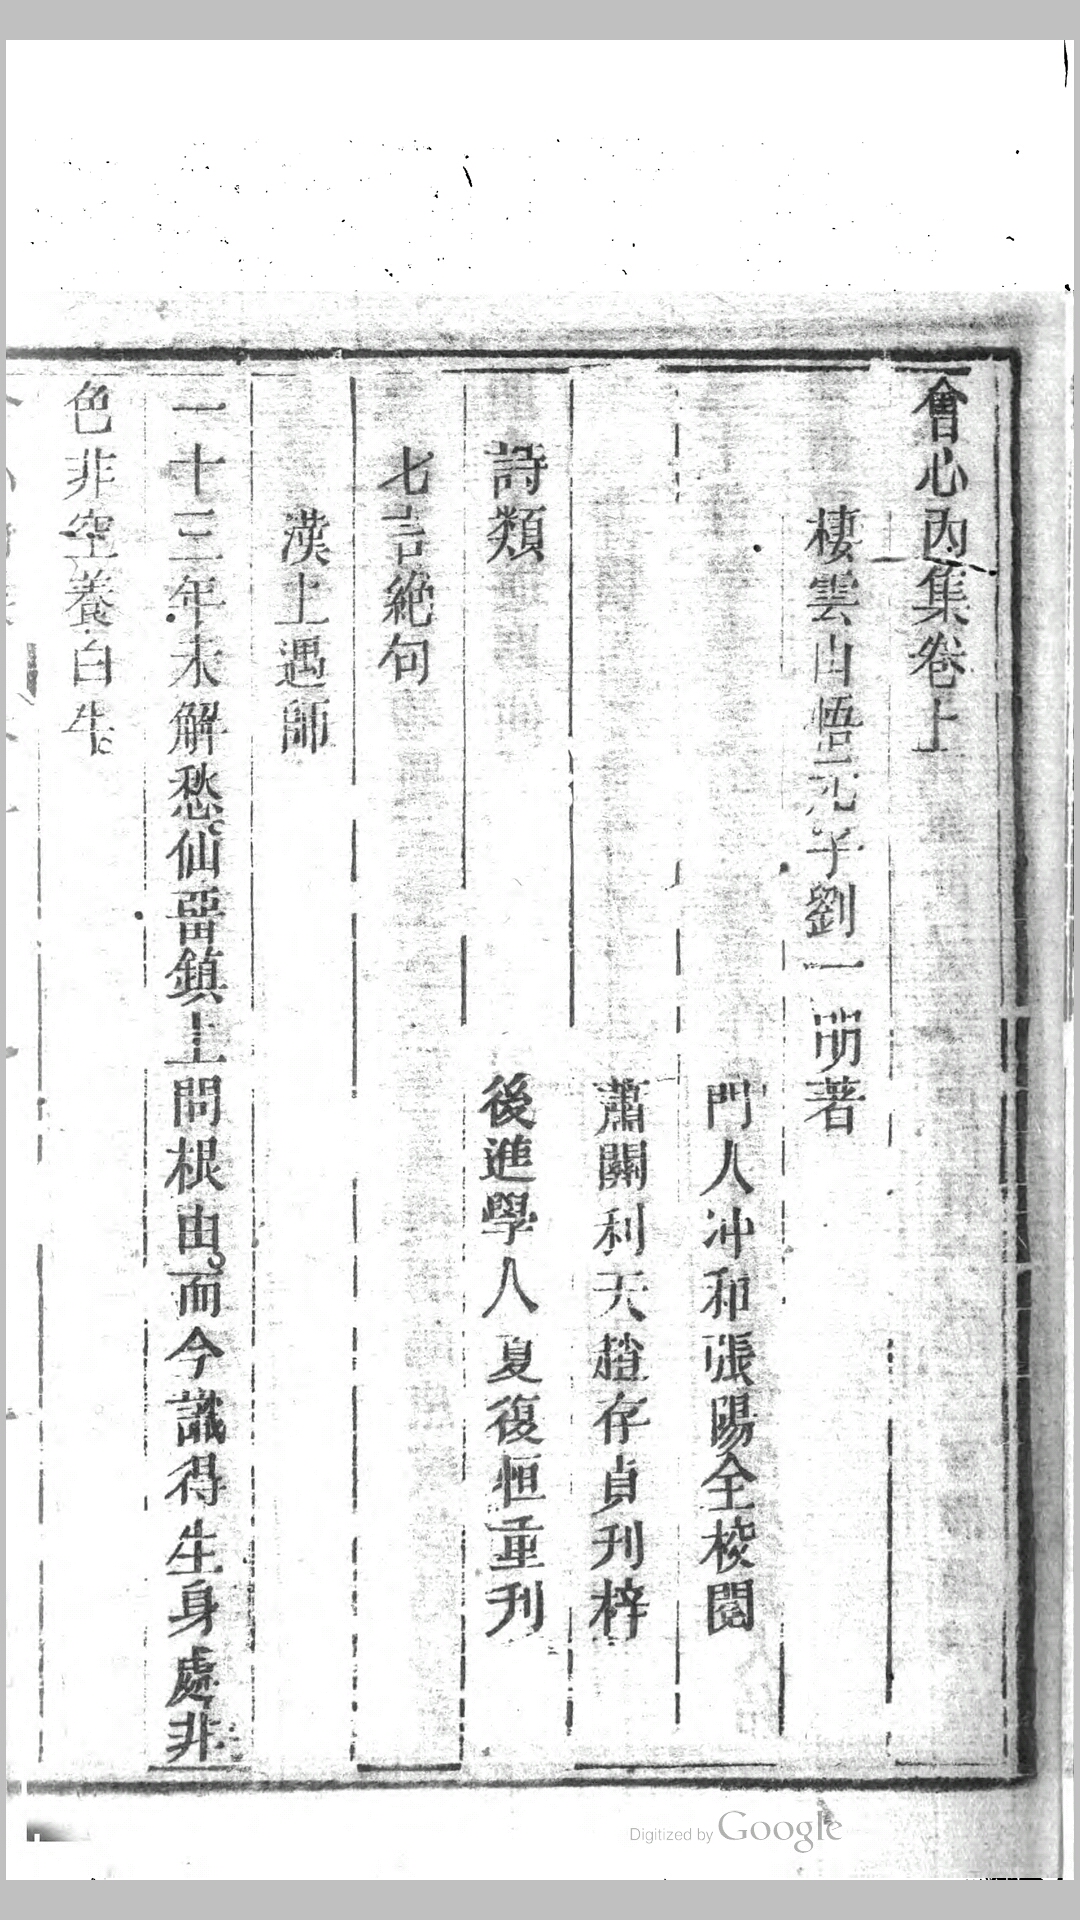 會心內集卷上
棲雲山悟元子劉一明著
門人冲和張陽全校閱
蕭關利天趙存貞刋梓
後進學人夏復恒重刋
詩類
七言絕句
漢上遇師
一十三年未解愁仙畱鎮上問根由而今識得生身處非
色非空養白牛
Digitized by Google